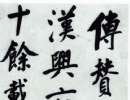 傳贊
漢興六
十餘載